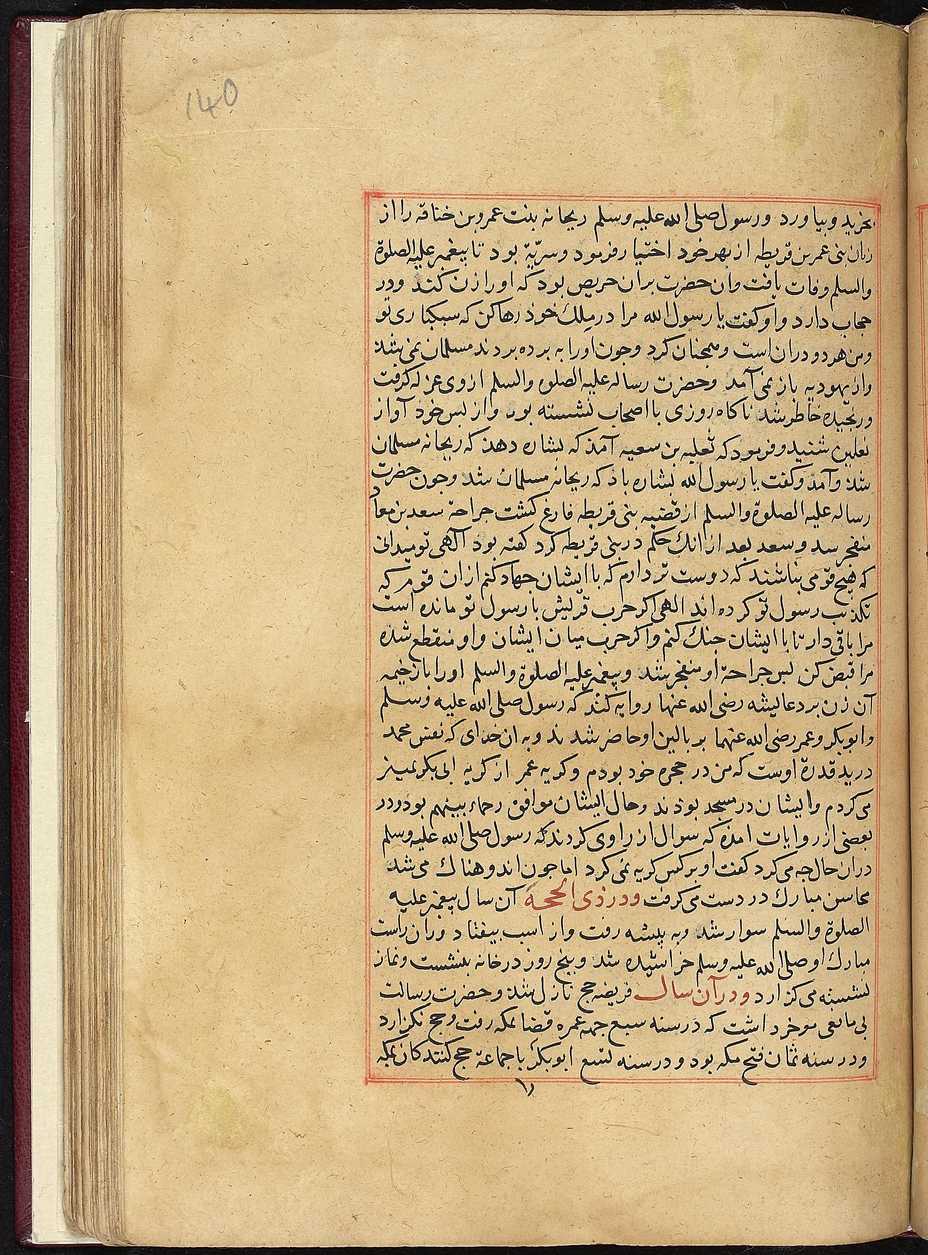 140
بخرید و بیاورد و رسول صلی الله علیه وسلم ریحانه بنت عمرو بن خنافه را از
زنان بنی عمر بن قریظه از بهر خود اختیار فرمود و سریّة بود تا پیغمبر علیه الصلوة
والسلم وفات یافت وان حضرت بران حریص بود که او را زن کند و در
حجاب دارد و او گفت یا رسول الله مرا در ملک خود رها کن که سبکباری تو
و من هر دو دران است و همچنان کرد و چون او را به برده بردند مسلمان نمی شد
و از یهودیه باز نمی آمد و حضرت رساله علیه الصلوه والسلم از وی عزله گرفت
و رنجیده خاطر شد ناکاه روزی با اصحاب نشسته بود و از پس خود آواز
نعلین شنید و فرمود که ثعلبه بن سعیه آمد که بشاره دهد که ریحانه مسلمان
شد و آمد و گفت یا رسول الله بشاره باد که ریحانه مسلمان شد و چون حضرت
رساله علیه الصلوة والسلم از قضیه بنی قریظه فارغ کشت جراحة سعد بن معاد
منفجر شد و سعد بعد از انک حکم در بنی قریظه کرد کفته بود آلهی تو میدانی
که هیچ قومی نباشند که دوست تر دارم که با ایشان جهاد کنم از ان قوم که
تکذیب رسول تو کرده اند الهی اکر حرب قریش با رسول تو مانده است
مرا باقی دار تا با ایشان جنک کنم و اکر حرب میان ایشان و او منقطع شده
مرا قبض کن پس جراحة او منفجر شد و پیغمبر علیه الصلوة والسلم او را باز خیمه
آن زن برد عایشه رضی الله عنها روایه کند که رسول صلی الله علیه وسلم
و ابو بکر و عمر رضی الله عنهما بر بالین او حاضر شدند و به ان خدای که نفس محمد
در ید قدرة اوست که من در حجره خود بودم و کریه عمر از کریه ابی بکر تمییز
می کردم و ایشان در مسجد بودند و حال ایشان موافق رحماء بینهم بود و در
بعضی از روایات امده که سوال از راوی کردند که رسول صلی الله علیه وسلم
دران حال چه می کرد کفت او بر کس کریه نمی کرد اما چون اندوهناک می شد
محاسن مبارک در دست می کرفت و در ذی الحجة آن سال پیغمبر علیه
الصلوة والسلم سوار شد و به بیشه رفت و از اسب بیفتاد و ران راست
مبارک او صلی الله علیه وسلم خراشیده شد و پنج روز در خانه بنشست و نماز
نشسته می کزارد و در آن سال فریضه حج نازل شد و حضرت رسالت
بی مانعی موخر داشت که در سنه سبع جهه عمره قضا بمکه رفت و حج نکزارد
و در سنه ثمان فتح مکه بود و در سنه تسع ابو بکر با جماعة حج کنندکان بمکه